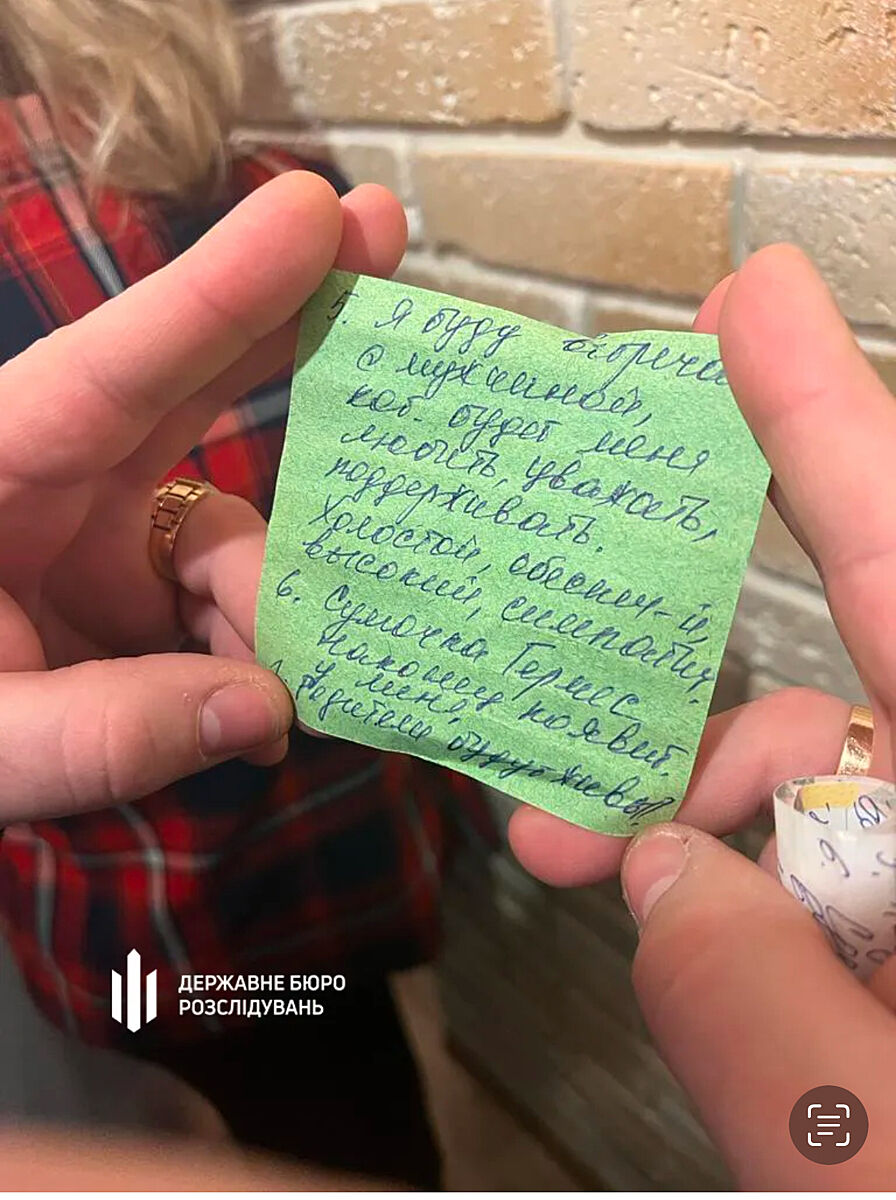 5. Я буду встреча
с мужчиной,
кот. будет меня
любить, уважать,
поддерживать.
Холостой, обеспеч-й,
высокий, симпатич.
6. Сумочка Гермес
наконец появит.
у меня,
Родители будут живы!
ДЕРЖАВНЕ БЮРО
РОЗСЛІДУВАНЬ